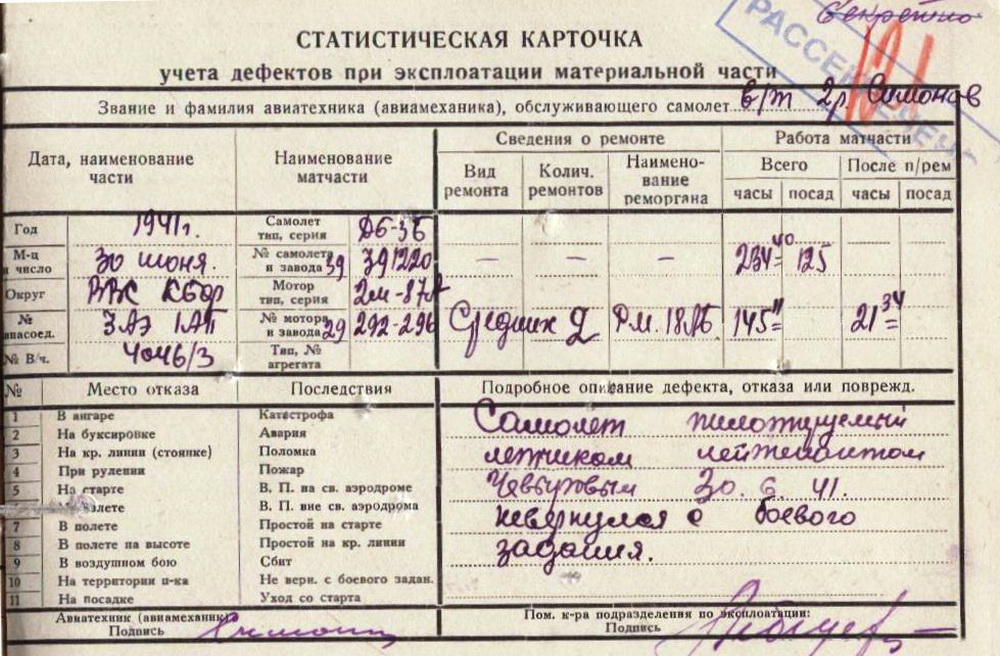 Секретно
РАССЕКРЕЧЕНО
СТАТИСТИЧЕСКАЯ КАРТОЧКА
учета дефектов при эксплоатации материальной части
Звание и фамилия авиатехника (авиамеханика), обслуживающего самолет в/т 2р. Симонов
Дата, наименование части
Наименование матчасти
Сведения о ремонте
Работа матчасти
Вид ремонта
Колич. ремонтов
Наимено-
вание
реморгана
Всего
После п/рем
часы посад часы посад
Год 1941г. Самолет тип, серия ДБ-3Б
М-ц и число 30 июня. № самолета и завода 39 391220 — — — 234 40 125
Округ ВВС КБФ Мотор тип, серия 2М-87А
№ авиасоед. 3АЭ 1АП № мотора и завода 29 292-296 Средних 2 Р.М. 18АБ 145 11 21 34
№ В/ч. 4046/3 Тип, № агрегата
№ Место отказа Последствия Подробное описание дефекта, отказа или поврежд.
1 В ангаре Катастрофа Самолет пилотируемый
2 На буксировке Авария
3 На кр. линии (стоянке) Поломка летчиком лейтенантом
4 При рулении Пожар
5 На старте В. П. на св. аэродроме 30. 6. 41.
взлете В. П. вне св. аэродрома невернулся с боевого
7 В полете Простой на старте
8 В полете на высоте Простой на кр. линии задания.
9 В воздушном бою Сбит
10 На территории п-ка Не верн. с боевого задан.
11 На посадке Уход со старта
Авиатехник (авиамеханик) Пом. к-ра подразделения по эксплоатации:
Подпись Подпись